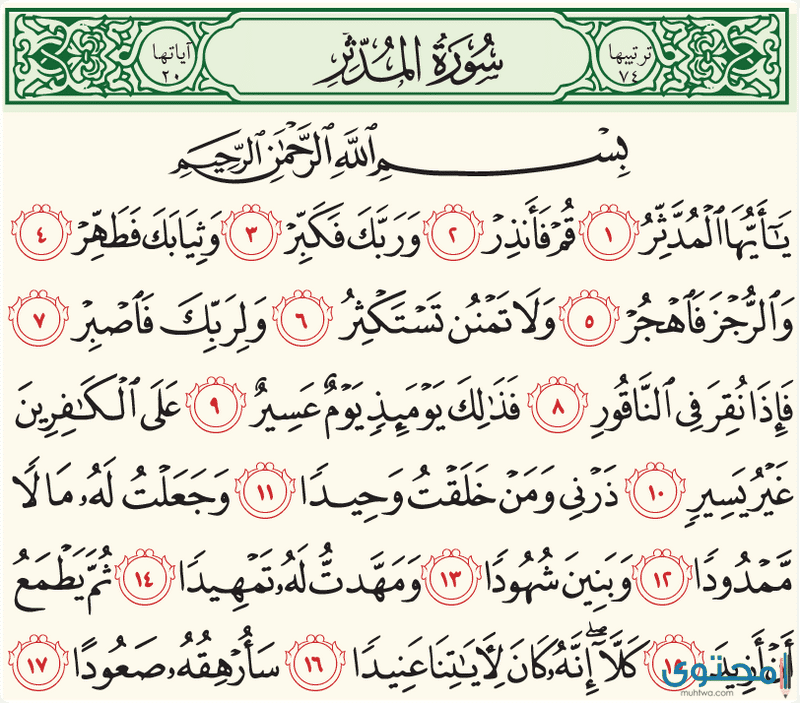 ترتيبها ٧٤
سُورَةُ المُدَّثِّرِ
آياتها ٢٠
بِسْمِ ٱللَّهِ ٱلرَّحْمَٰنِ ٱلرَّحِيمِ
يَٰٓأَيُّهَا ٱلْمُدَّثِّرُ ١ قُمْ فَأَنذِرْ ٢ وَرَبَّكَ فَكَبِّرْ ٣ وَثِيَابَكَ فَطَهِّرْ ٤
وَٱلرُّجْزَ فَٱهْجُرْ ٥ وَلَا تَمْنُن تَسْتَكْثِرُ ٦ وَلِرَبِّكَ فَٱصْبِرْ ٧
فَإِذَا نُقِرَ فِى ٱلنَّاقُورِ ٨ فَذَٰلِكَ يَوْمَئِذٍ يَوْمٌ عَسِيرٌ ٩ عَلَى ٱلْكَٰفِرِينَ
غَيْرُ يَسِيرٍ ١٠ ذَرْنِى وَمَنْ خَلَقْتُ وَحِيدًا ١١ وَجَعَلْتُ لَهُۥ مَالًا
مَّمْدُودًا ١٢ وَبَنِينَ شُهُودًا ١٣ وَمَهَّدتُّ لَهُۥ تَمْهِيدًا ١٤ ثُمَّ يَطْمَعُ
أَنْ أَزِيدَ ١٥ كَلَّآ ۖ إِنَّهُۥ كَانَ لِـَٔايَٰتِنَا عَنِيدًا ١٦ سَأُرْهِقُهُۥ صَعُودًا ١٧
محتوى
muhtwa.com